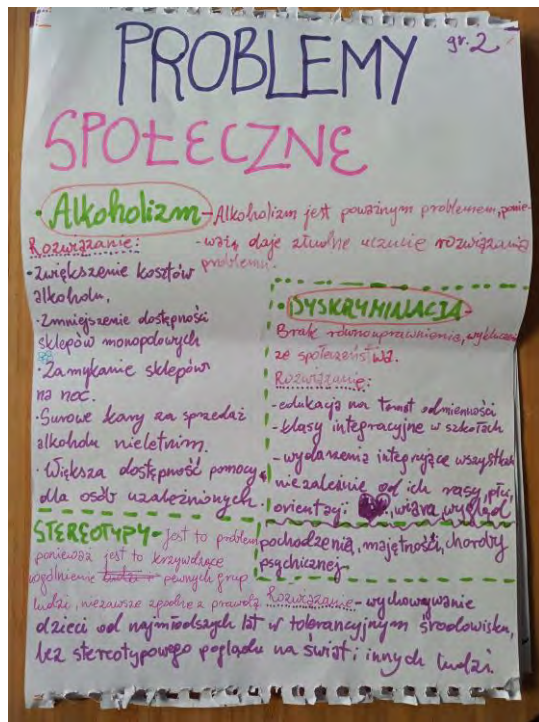 PROBLEMY gr. 2
SPOŁECZNE
• Alkoholizm - Alkoholizm jest poważnym problemem, ponie-
- waż daje złudne uczucie rozwiązania
problemu.
Rozwiązanie:
• Zwiększenie kosztów
alkoholu.
• Zmniejszenie dostępności
sklepów monopolowych
• Zamykanie sklepów
na noc.
• Surowe kary za sprzedaż
alkoholu nieletnim.
• Większa dostępność pomocy
dla osób uzależnionych.
• DYSKRYMINACJA -
Brak równouprawnienia,
ze społeczeństwa.
Rozwiązanie:
- edukacja na temat odmienności
- klasy integracyjne w szkołach
- wydarzenia integrujące wszystkich
niezależnie od ich rasy, płci,
orientacji, wiara, wygląd
pochodzenia, majętności, choroby
psychicznej-
STEREOTYPY - Jest to problem
ponieważ jest to krzywdzące
uogólnienie ludzi pewnych grup
ludzi, niezawsze zgodne z prawdą
Rozwiązanie - wychowywanie
dzieci od najmłodszych lat w tolerancyjnym środowisku,
bez stereotypowego poglądu na świat i innych ludzi.